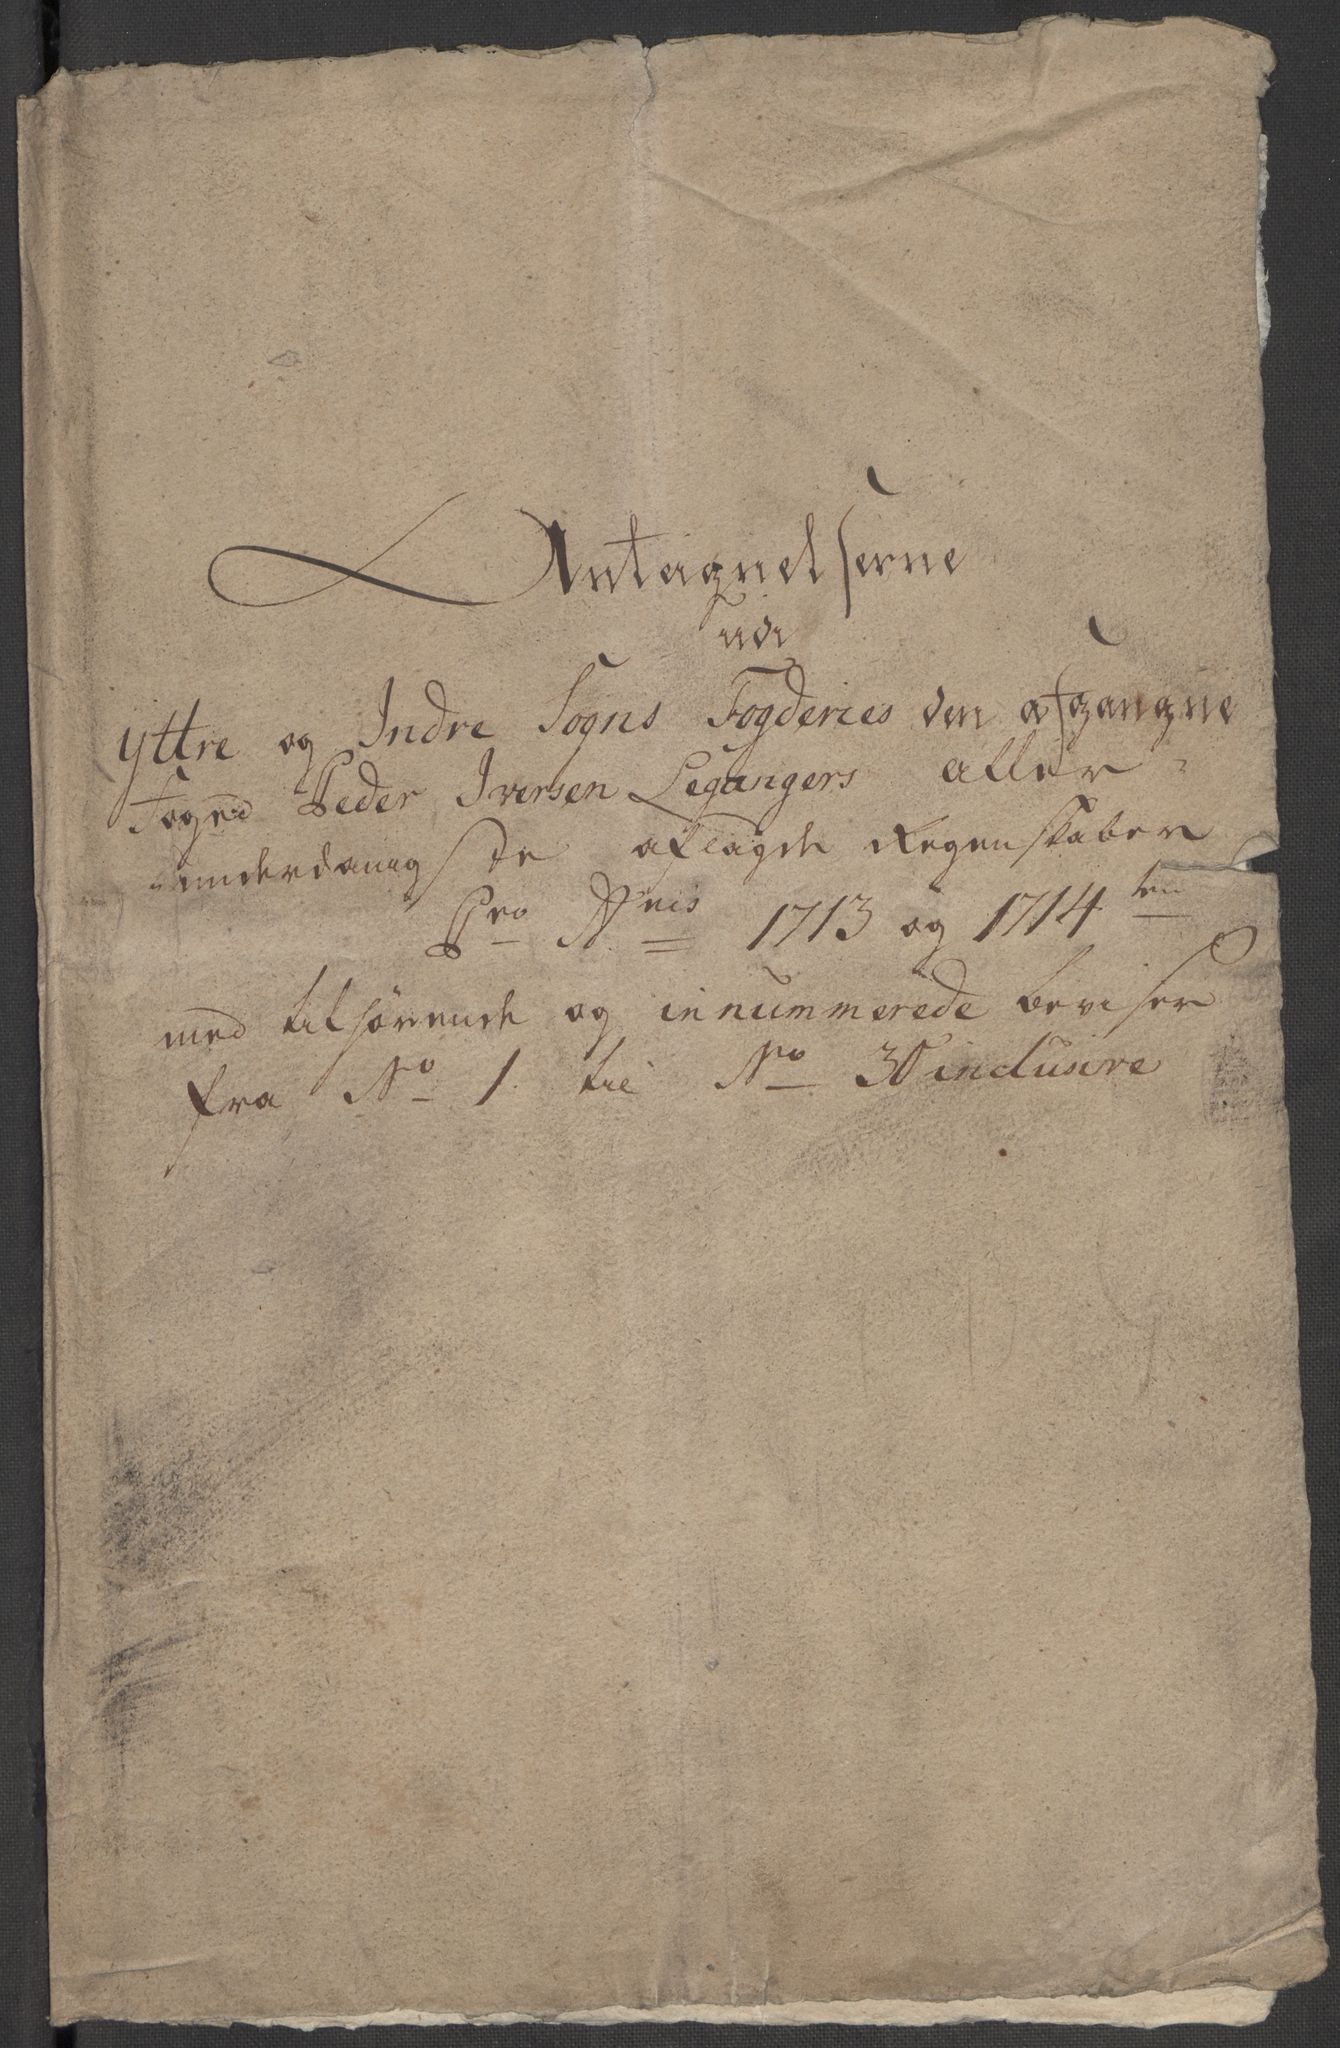 Antagnelserne
udi
Yttre og Indre Sogns Fogderies den afgangne
Foged Peder Iversen Legangers aller-
underdanigste aflagde Regenskaber
Pro Annis 1713 og 1714 ten
med tilhørende og innummerede beviser
fra No 1. til No 35 inclusive